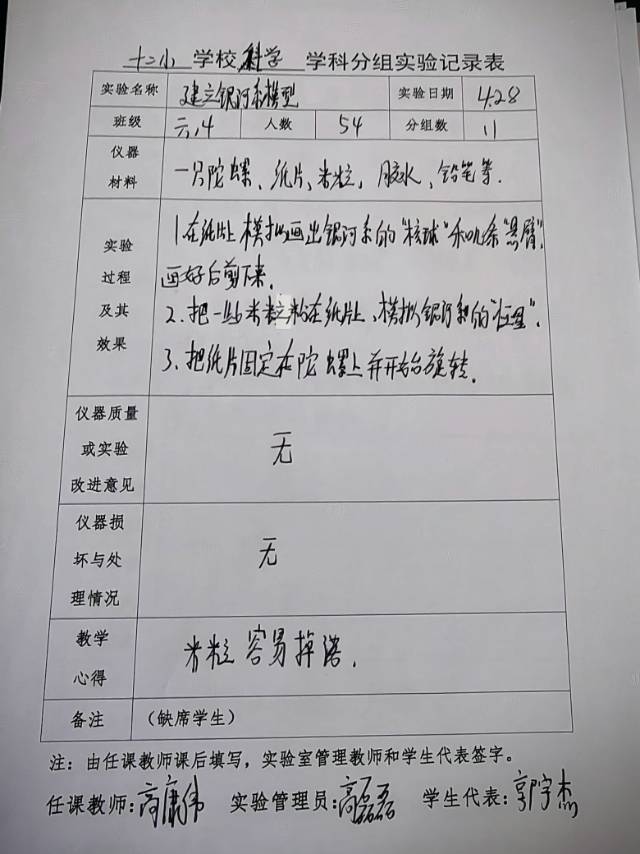 十二小 学校 科学 学科分组实验记录表
实验名称 建立银河系模型 实验日期 4.28
班级 六.4 人数 54 分组数 11
仪器材料 一只陀螺、纸片、米粒、胶水、铅笔等.
实验过程及其效果
1.在纸片上模拟画出银河系的“核球”和几条“悬臂”,
画好后剪下来.
2.把一些米粒粘在纸片上、模拟银河系的“恒星”.
3.把纸片固定在陀螺上并开始旋转.
仪器质量或实验改进意见 无
仪器损坏与处理情况 无
教学心得 米粒容易掉落.
备注 (缺席学生)
注：由任课教师课后填写，实验室管理教师和学生代表签字。
任课教师:高庸伟 实验管理员:高磊磊 学生代表:郭宇杰